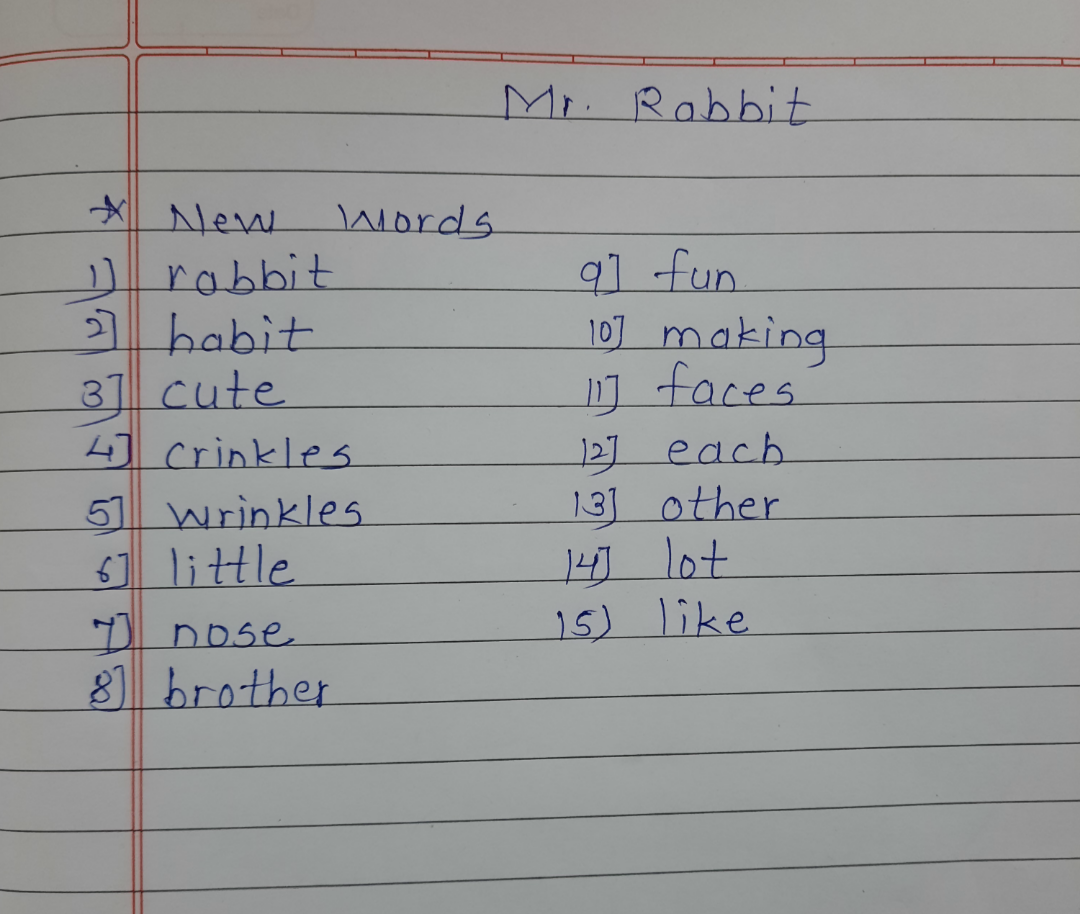 Mr. Rabbit
* New Words
1] rabbit
2] habit
3] cute
4] crinkles
5] wrinkles
6] little
7] nose
8] brother
9] fun
10] making
11] faces
12] each
13] other
14] lot
15) like